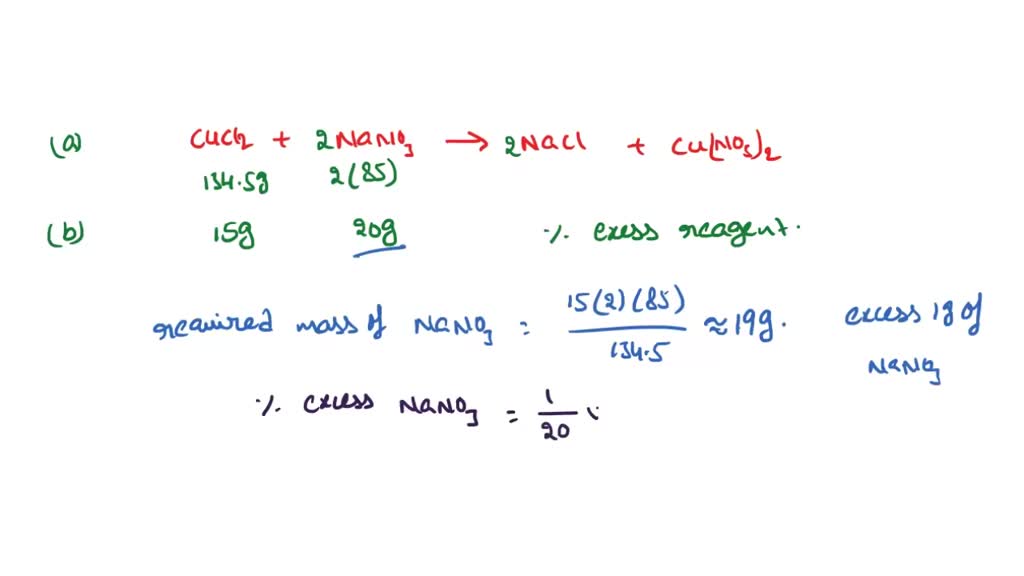 (a) CuCl2 + 2NaNO3 → 2NaCl + Cu(NO3)2
134.5g 2(85)
(b) 15g 20g ·/. exess reagent.
reauired mass of NaNO3 = 15(2)(85) / 134.5 ≈ 19g. excess 1g of NaNO3
·/. excess NaNO3 = 1 / 20